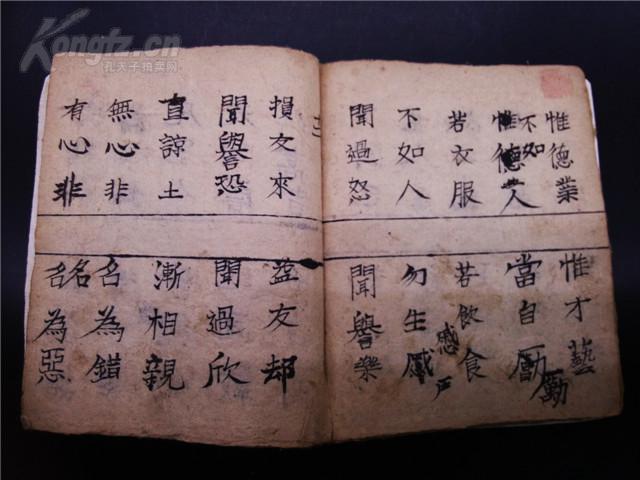 Kongfz.cn
孔夫子拍卖网
惟德業
惟才藝
惟德人
不如
當自勵
勵
若衣服
若飲食
不如人
勿生慼
感
严
聞過怒
聞譽樂
損友來
益友却
聞譽恐
聞過欣
直諒土
漸相親
無心非
名為錯
有心非
名名為惡